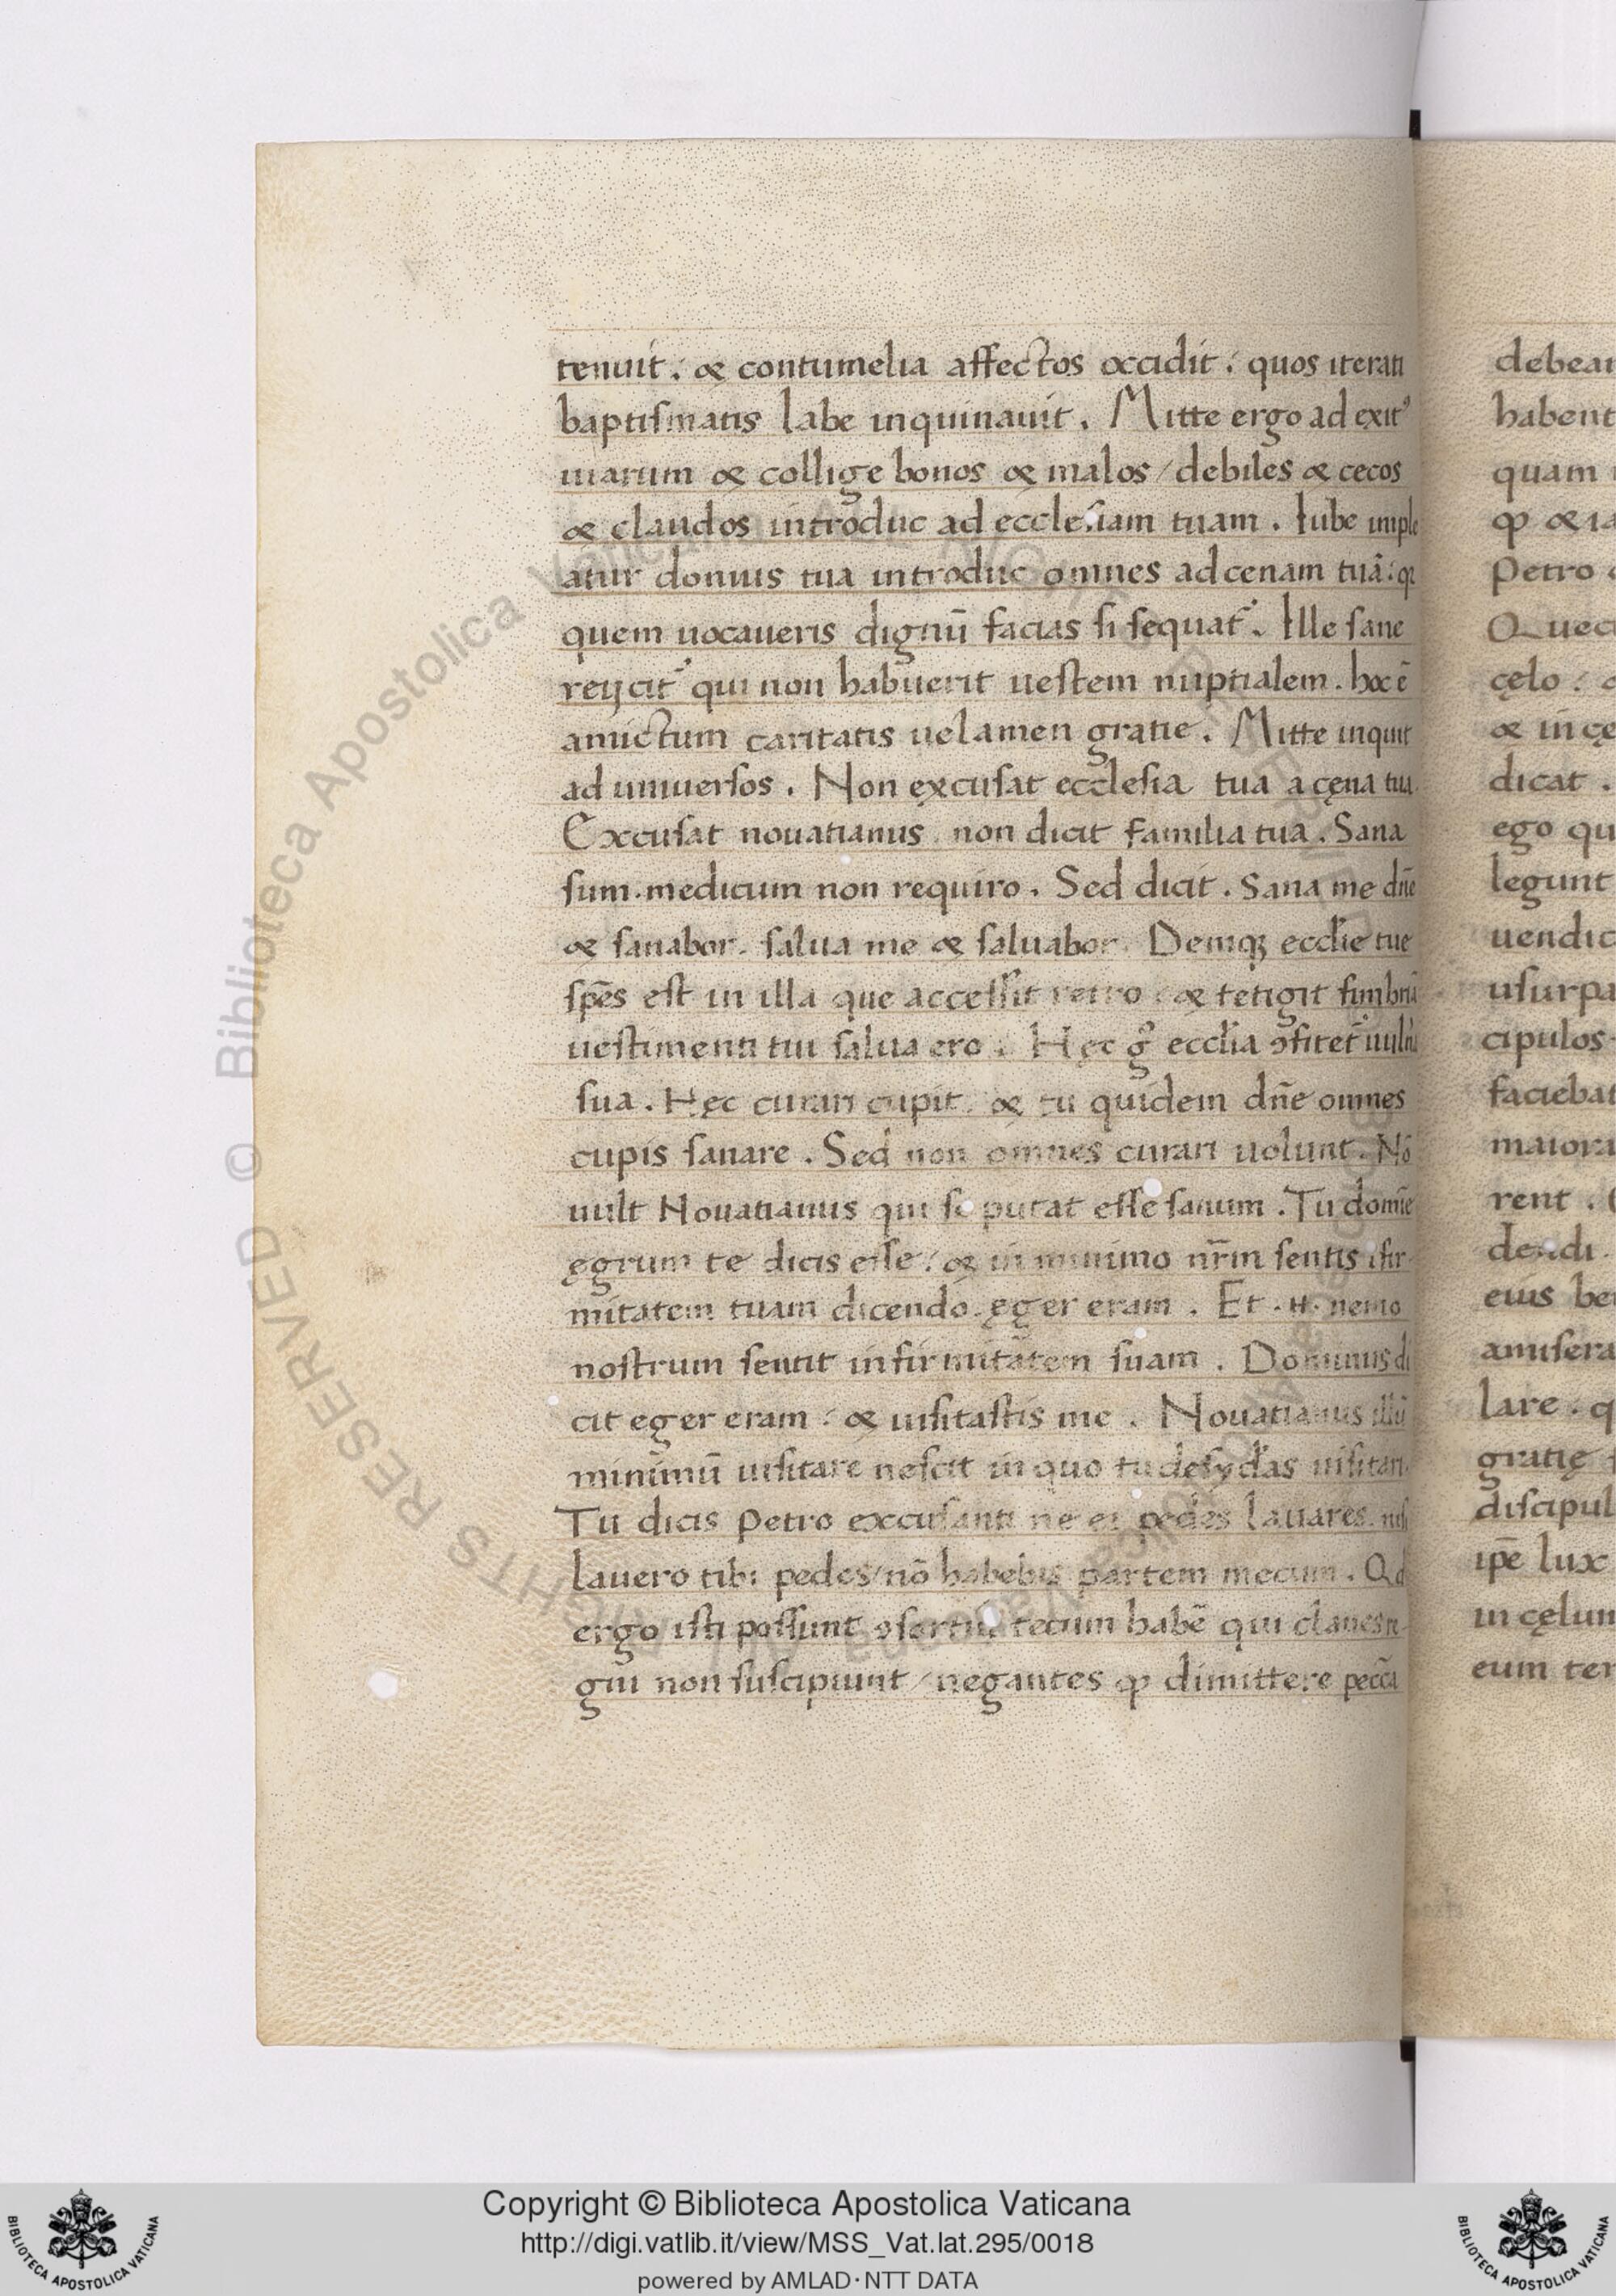 tenuit: & contumelia affectos occidit: quos iterati
baptismatis labe inquinauit. Mitte ergo ad exitꝰ
uiarum & collige bonos & malos / debiles & cecos
& claudos introduc ad ecclesiam tuam. Iube imple
atur domus tua introduc omnes ad cenam tuā: qꝛ
quem uocaueris dignū facias si sequat᷑. Ille sane
reijcit᷑ qui non habuerit uestem nuptialem. hoc ē
amictum caritatis uelamen gratie. Mitte inquit
ad uniuersos. Non excusat ecclesia tua a cęna tua.
Excusat nouatianus. non dicit familia tua. Sana
sum. medicum non requiro. Sed dicit. Sana me dn̄e
& sanabor. salua me & saluabor. Deniqꝫ eccl̄ie tue
spēs est in illa que accessit retro: & tetigit fimbriā
uestimenti tui salua ero. Hęc gͦ eccl̄ia ꝯfitet᷑ uulnera
sua. Hęc curari cupit. & tu quidem dn̄e omnes
cupis sanare. Sed non omnes curari uolunt. Nō
uult Nouatianus qui se putat esse sanum. Tu domīe
ęgrum te dicis esse: & in minimo nr̄m sentis ifir-
mitatem tuam dicendo. ęger eram. Et .N. nemo
nostrum sentit infirmitatem suam. Dominus di
cit eger eram: & uisitastis me. Nouatianus illū
minimū uisitare nescit in quo tu desyd̄as uisitari.
Tu dicis Petro excusanti ne ei pedes lauares. nisi
lauero tibi pedes / nō habebis partem mecum. Qd
ergo isti possunt ꝯsortiū tecum habē qui claues re-
gni non suscipiunt / negantes ꝙ dimittere pecc̄a
debea
habent
quam
ꝙ & ia
Petro
Quec
cęlo:
& in cę
dicat.
ego qu
legunt
uendic
usurpa
cipulos
faciebat
maiora
rent.
dendi.
eius be
amisera
lare: q
gratię
discipul
ip̄e lux
in cęlum
eum ter
Copyright © Biblioteca Apostolica Vaticana
http://digi.vatlib.it/view/MSS_Vat.lat.295/0018
powered by AMLAD·NTT DATA
BIBLIOTECA APOSTOLICA VATICANA
BIBLIOTECA APOSTOLICA VATICANA